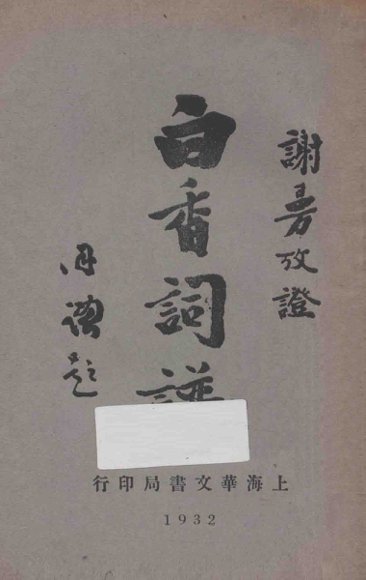 謝攷證
白香詞譜
題
上海華文書局印行
1932